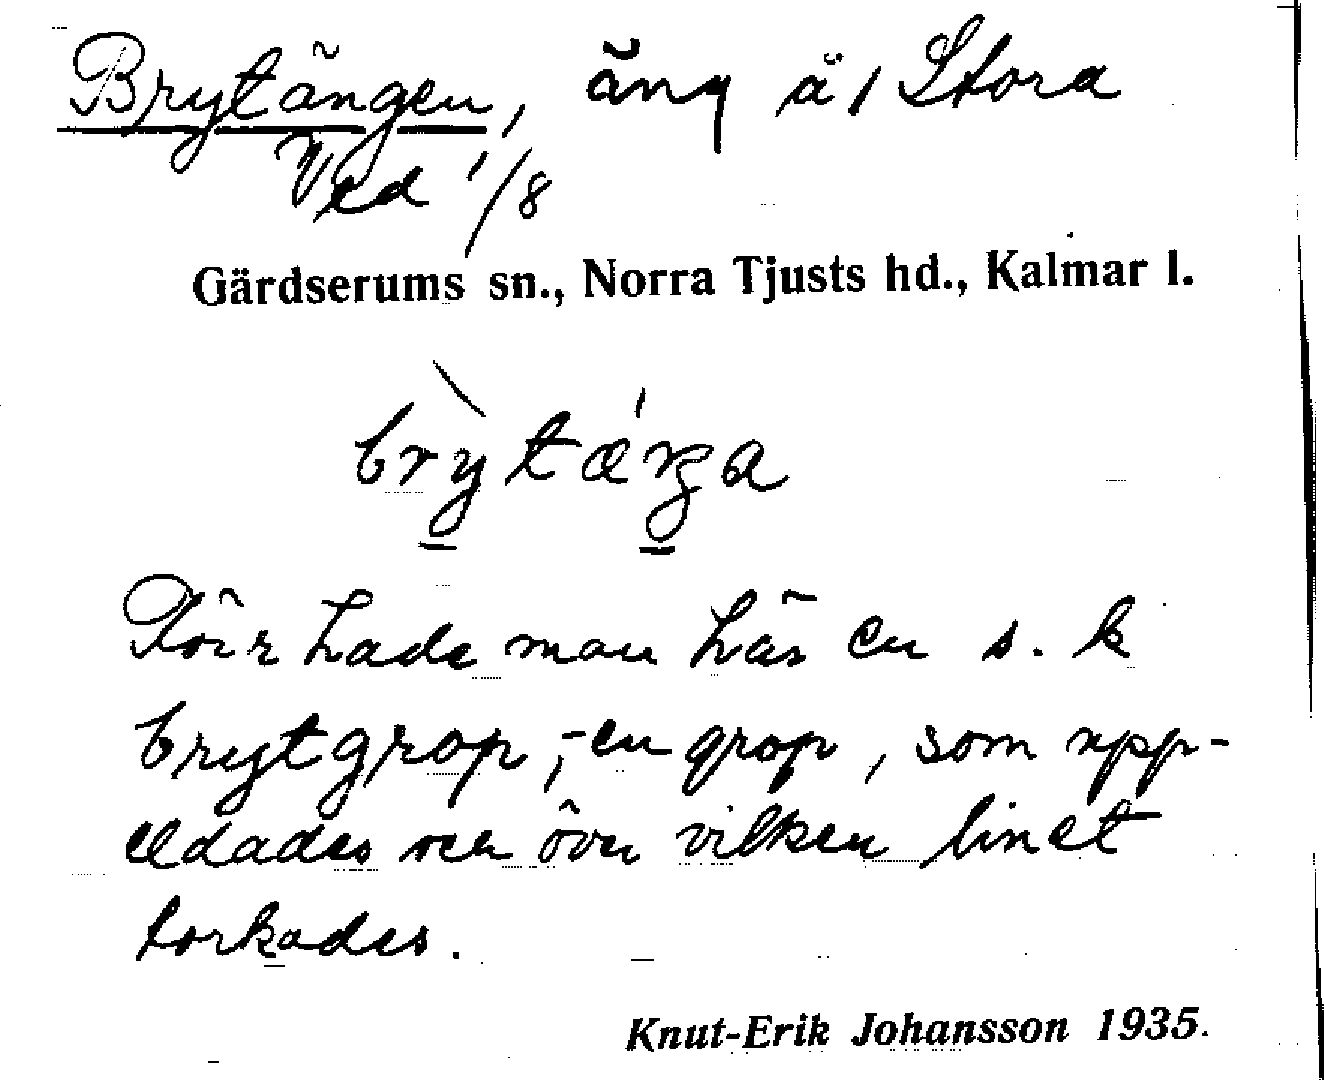 Brytängen, äng å/ Stora
Ved 1/8
Gärdserums sn., Norra Tjusts hd., Kalmar l.
brỳtæ´ŋa
Förr hade man här en s. k
brytgrop, - en grop, som upp-
eldades och över vilken linet
torkades.
Knut-Erik Johansson 1935.